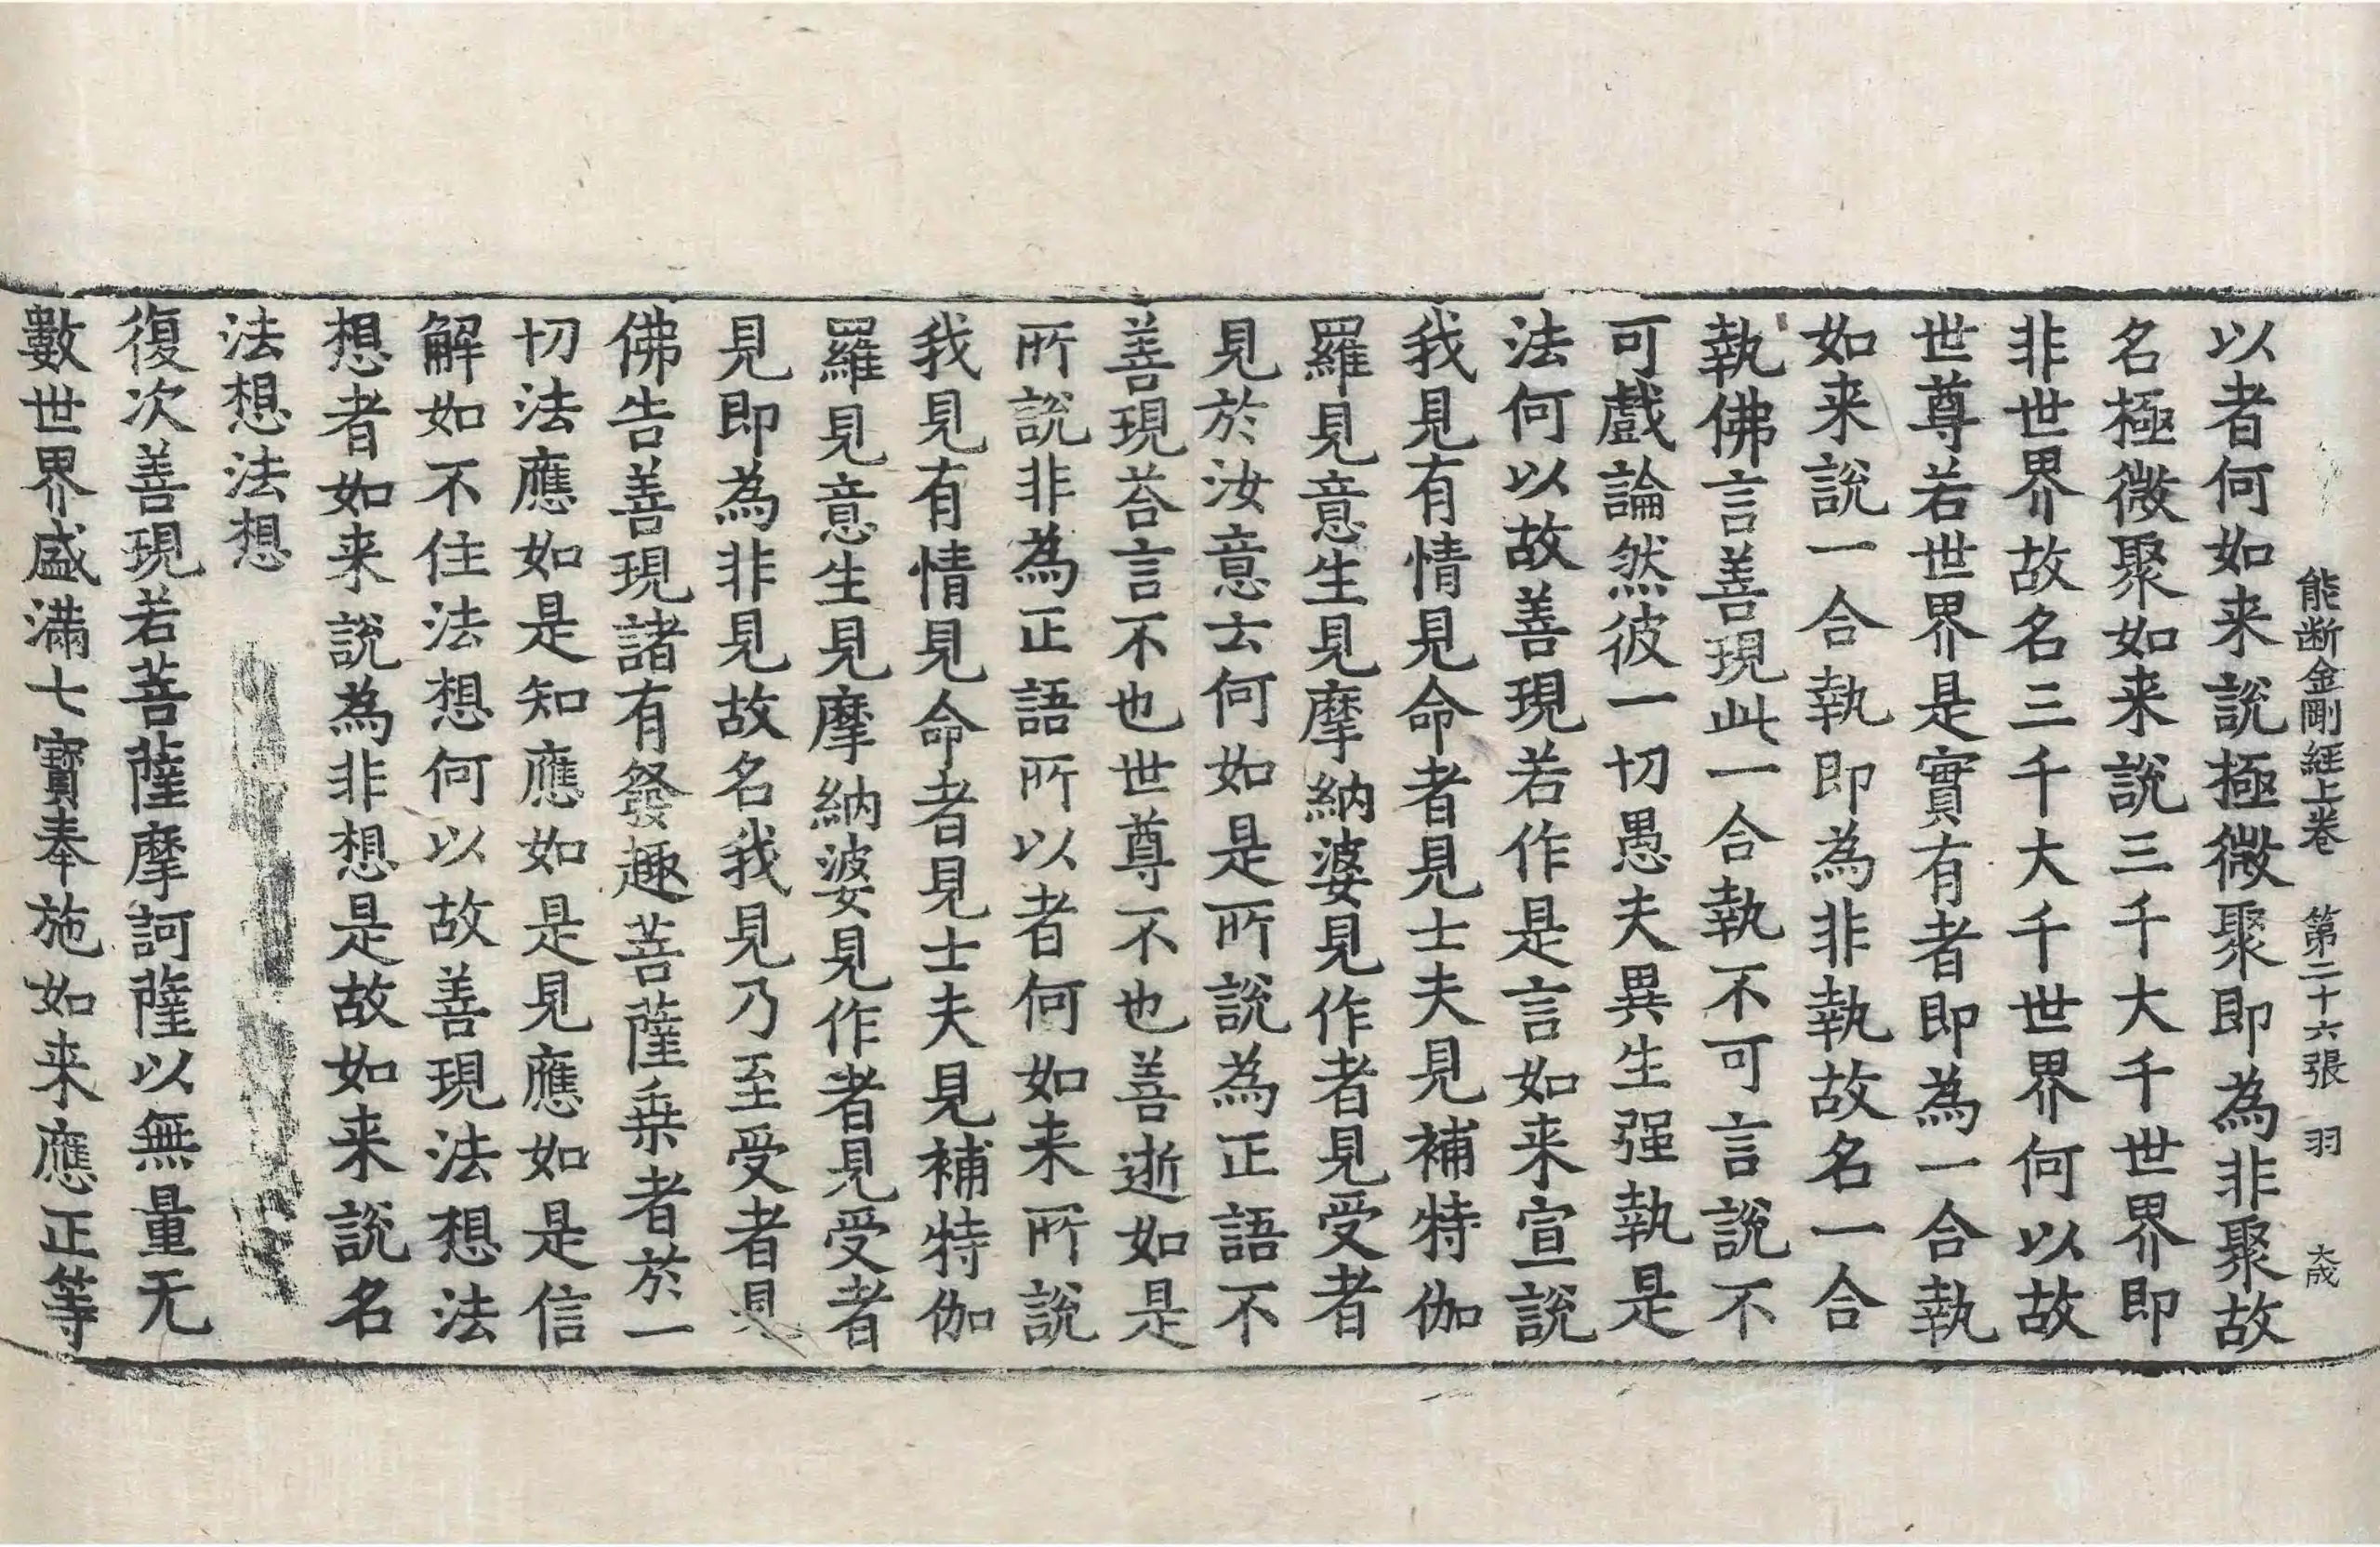 能断金剛經上卷 第二十六張 羽 大成
以者何如来說極微聚即為非聚故
名極微聚如来說三千大千世界即
非世界故名三千大千世界何以故
世尊若世界是實有者即為一合執
如来說一合執即為非執故名一合
執佛言善現此一合執不可言說不
可戲論然彼一切愚夫異生强執是
法何以故善現若作是言如来宣說
我見有情見命者見士夫見補特伽
羅見意生見摩納婆見作者見受者
見於汝意云何如是所說為正語不
善現荅言不也世尊不也善逝如是
所說非為正語所以者何如来所說
我見有情見命者見士夫見補特伽
羅見意生見摩納婆見作者見受者
見即為非見故名我見乃至受者見
佛告善現諸有發趣菩薩乗者於一
切法應如是知應如是見應如是信
解如不住法想何以故善現法想法
想者如来說為非想是故如来說名
法想法想
復次善現若菩薩摩訶薩以無量无
數世界盛滿七寶奉施如来應正等